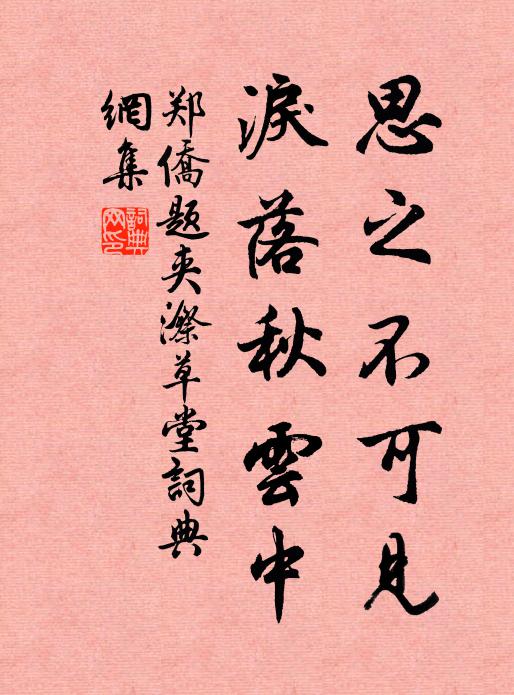 思之不可見
淚落秋雲中
郑僑題夾漈草堂詞典
網集
詞典
网印